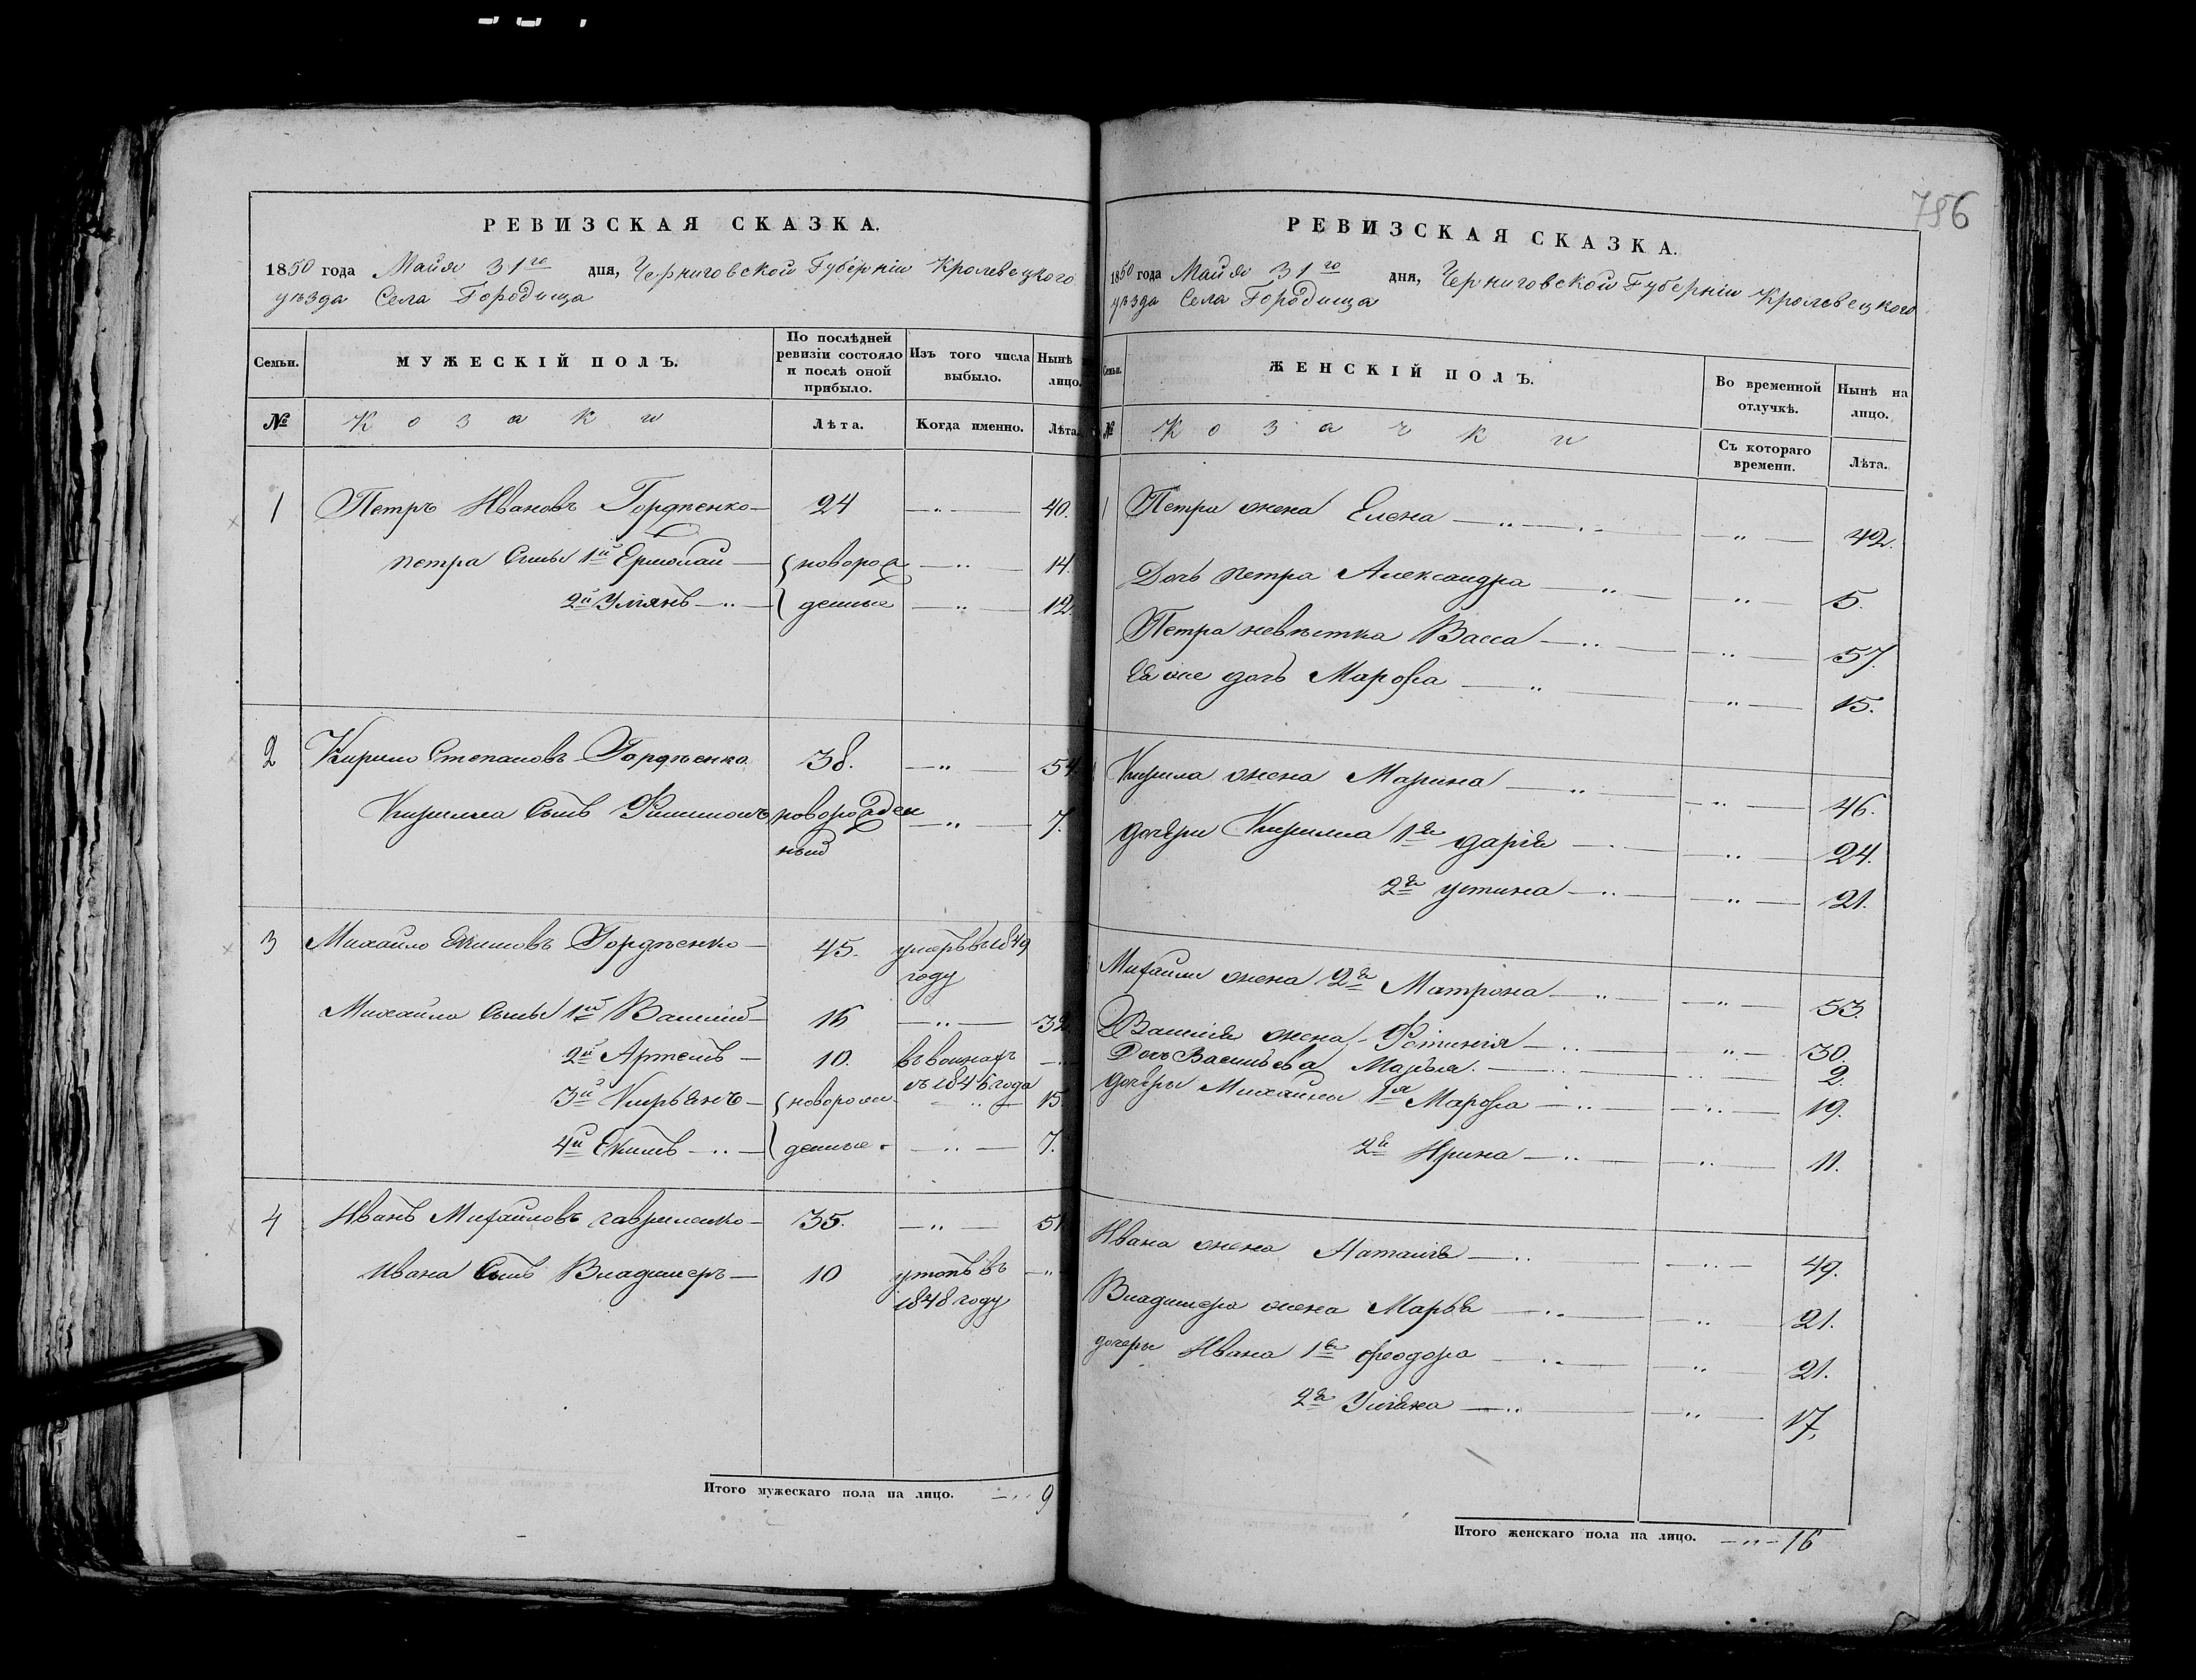 786
РЕВИЗСКАЯ СКАЗКА.
1850 года Майя 31го дня, Черниговской Губерніи Кролевецкого
уѣзда Села Городища
Семьи. МУЖЕСКІЙ ПОЛЪ. По послѣдней ревизіи состояло и послѣ оной прибыло. Изъ того числа выбыло. Нынѣ лицо.
№ Козаки Лѣта. Когда именно. Лѣта
1 Петръ Ивановъ Гордѣенко 24 — " — 40.
Петра Сыны 1й Ермолай новорож — " — 14.
2й Улянъ денные — " — 12
2 Кирило Степановъ Гордѣенко 38. — " — 54
Кирилла Сынъ Филимонъ новорожден — " — 7.
ный
3 Михайло Екимовъ Гордѣенко 45. умеръ въ 1849
году
Михаила Сыны 1й Василій 16 — " — 32
2й Артемъ 10. въ воинахъ —
съ 1846 года
3й Кирьянъ новорож — " — 15
4й Екимъ денные — " — 7.
4 Иванъ Михайловъ Гавриленко 35. — " — 51
Ивана Сынъ Владимеръ 10 утопъ въ — "
1848 году
Итого мужескаго пола на лицо. 9
РЕВИЗСКАЯ СКАЗКА.
1850 года Майя 31го дня, Черниговской Губерніи Кролевецкого
уѣзда Села Городища
Семьи. ЖЕНСКІЙ ПОЛЪ. Во временной отлучкѣ. Нынѣ на лицо.
№ Козачки Съ котораго времени. Лѣта.
1 Петра жена Елена — " — 42.
Дочь Петра Александра — " — 5.
Петра невѣстка Васса — " — 57.
Ея же дочь Марфа — " — 15.
Кирила жена Марина — " — 46.
Дочери Кирилла 1я Дарія — " — 24.
2я Устина — " — 21.
Михайли жена 2я Матрона — " — 53
Василія жена Фотинія — " — 30.
Дочь Васильева Марья. — " — 2.
Дочери Михайлы 1я Марфа — " — 19.
2я Ирина — " — 11.
Ивана жена Наталія — " — 49.
Владимера жена Марья — " — 21.
Дочери Ивана 1я Феодора — " — 21.
2я Уліяна — " — 17.
Итого женскаго пола на лицо. — " — 16